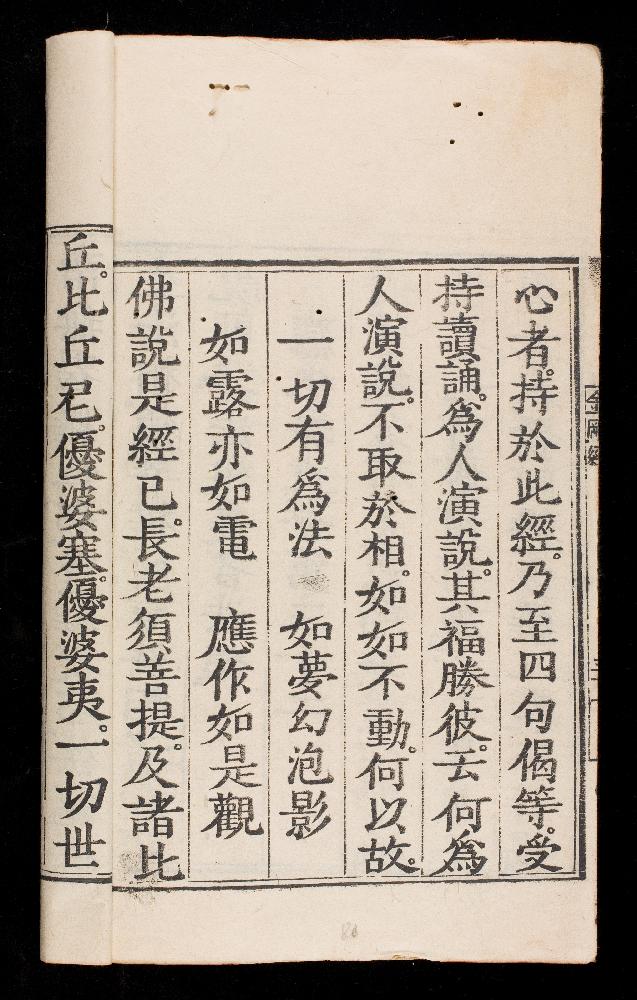 心者。持於此經。乃至四句偈等。受
持讀誦。爲人演說。其福勝彼。云何爲
人演說。不取於相。如如不動。何以故。
一切有爲法　如夢幻泡影
如露亦如電　應作如是觀
佛說是經已。長老須菩提。及諸比
丘。比丘尼。優婆塞。優婆夷。一切世
金剛經
80